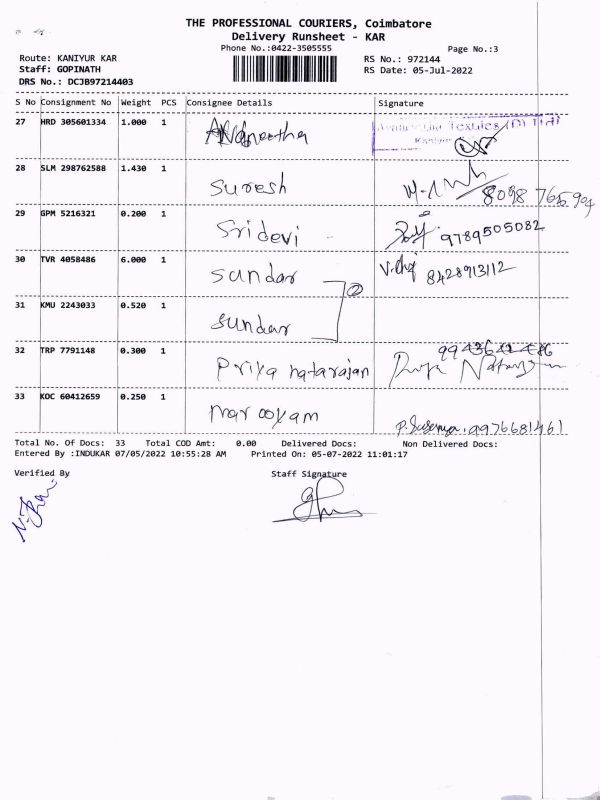 THE PROFESSIONAL COURIERS, Coimbatore
Delivery Runsheet - KAR
Phone No.:0422-3505555
Page No.:3
Route: KANIYUR KAR
RS No.: 972144
Staff: GOPINATH
RS Date: 05-Jul-2022
DRS No.: DCJB97214403
S No Consignment No Weight PCS Consignee Details Signature
27 HRD 305601334 1.000 1
Textiles (P) Ltd
28 SLM 298762588 1.430 1
Suresh
8098 765 904
29 GPM 5216321 0.200 1
Sridevi
9789505082
30 TVR 4058486 6.000 1
Sundar
2
8428913112
31 KMU 2243033 0.520 1
Sundar
32 TRP 7791148 0.300 1
Priya natarajan
33 KOC 60412659 0.250 1
9976681461
Total No. Of Docs: 33 Total COD Amt: 0.00 Delivered Docs: Non Delivered Docs:
Entered By :INDUKAR 07/05/2022 10:55:28 AM Printed On: 05-07-2022 11:01:17
Verified By Staff Signature